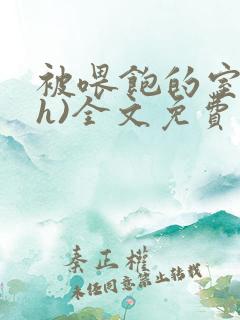 被喂飽的室
h)全文免費
秦正權
未经同意禁止转载